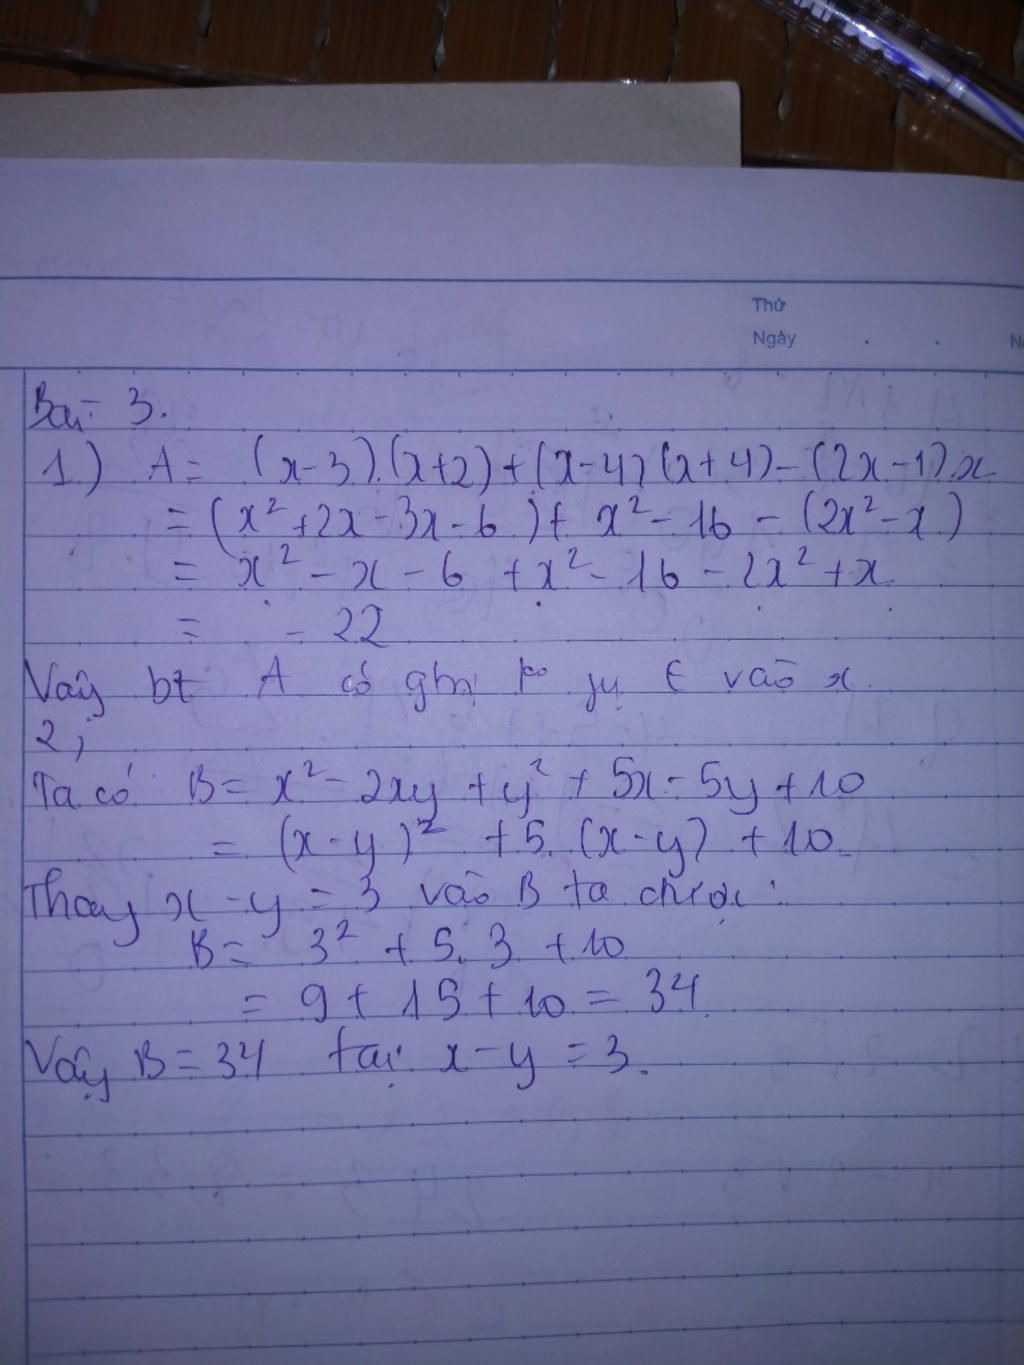 Thứ
Ngày . .
Bài 3.
1.) A = (x-3).(x+2)+(x-4)(x+4)-(2x-1).x
= (x²+2x-3x-6)+ x²-16-(2x²-x)
= x²-x-6 +x²-16-2x²+x
= -22
Vậy bt A có gtrị ko fụ € vào x.
2,
Ta có B = x²-2xy+y²+5x-5y+10
= (x-y)² +5.(x-y)+10
Thay x-y=3 vào B ta được:
B = 3² +5.3 +10
= 9+15+10=34
Vậy B=34 tại x-y=3.